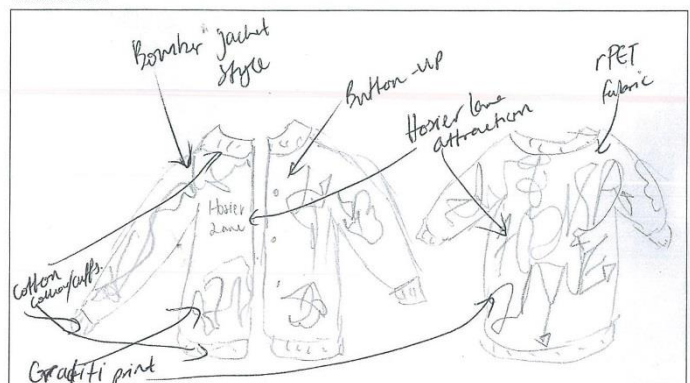 "Bomber" jacket
style
Button-up
Hosier lane
attraction
rPET
fabric
Hosier
Lane
Cotton
collar/cuffs.
Grafiti print